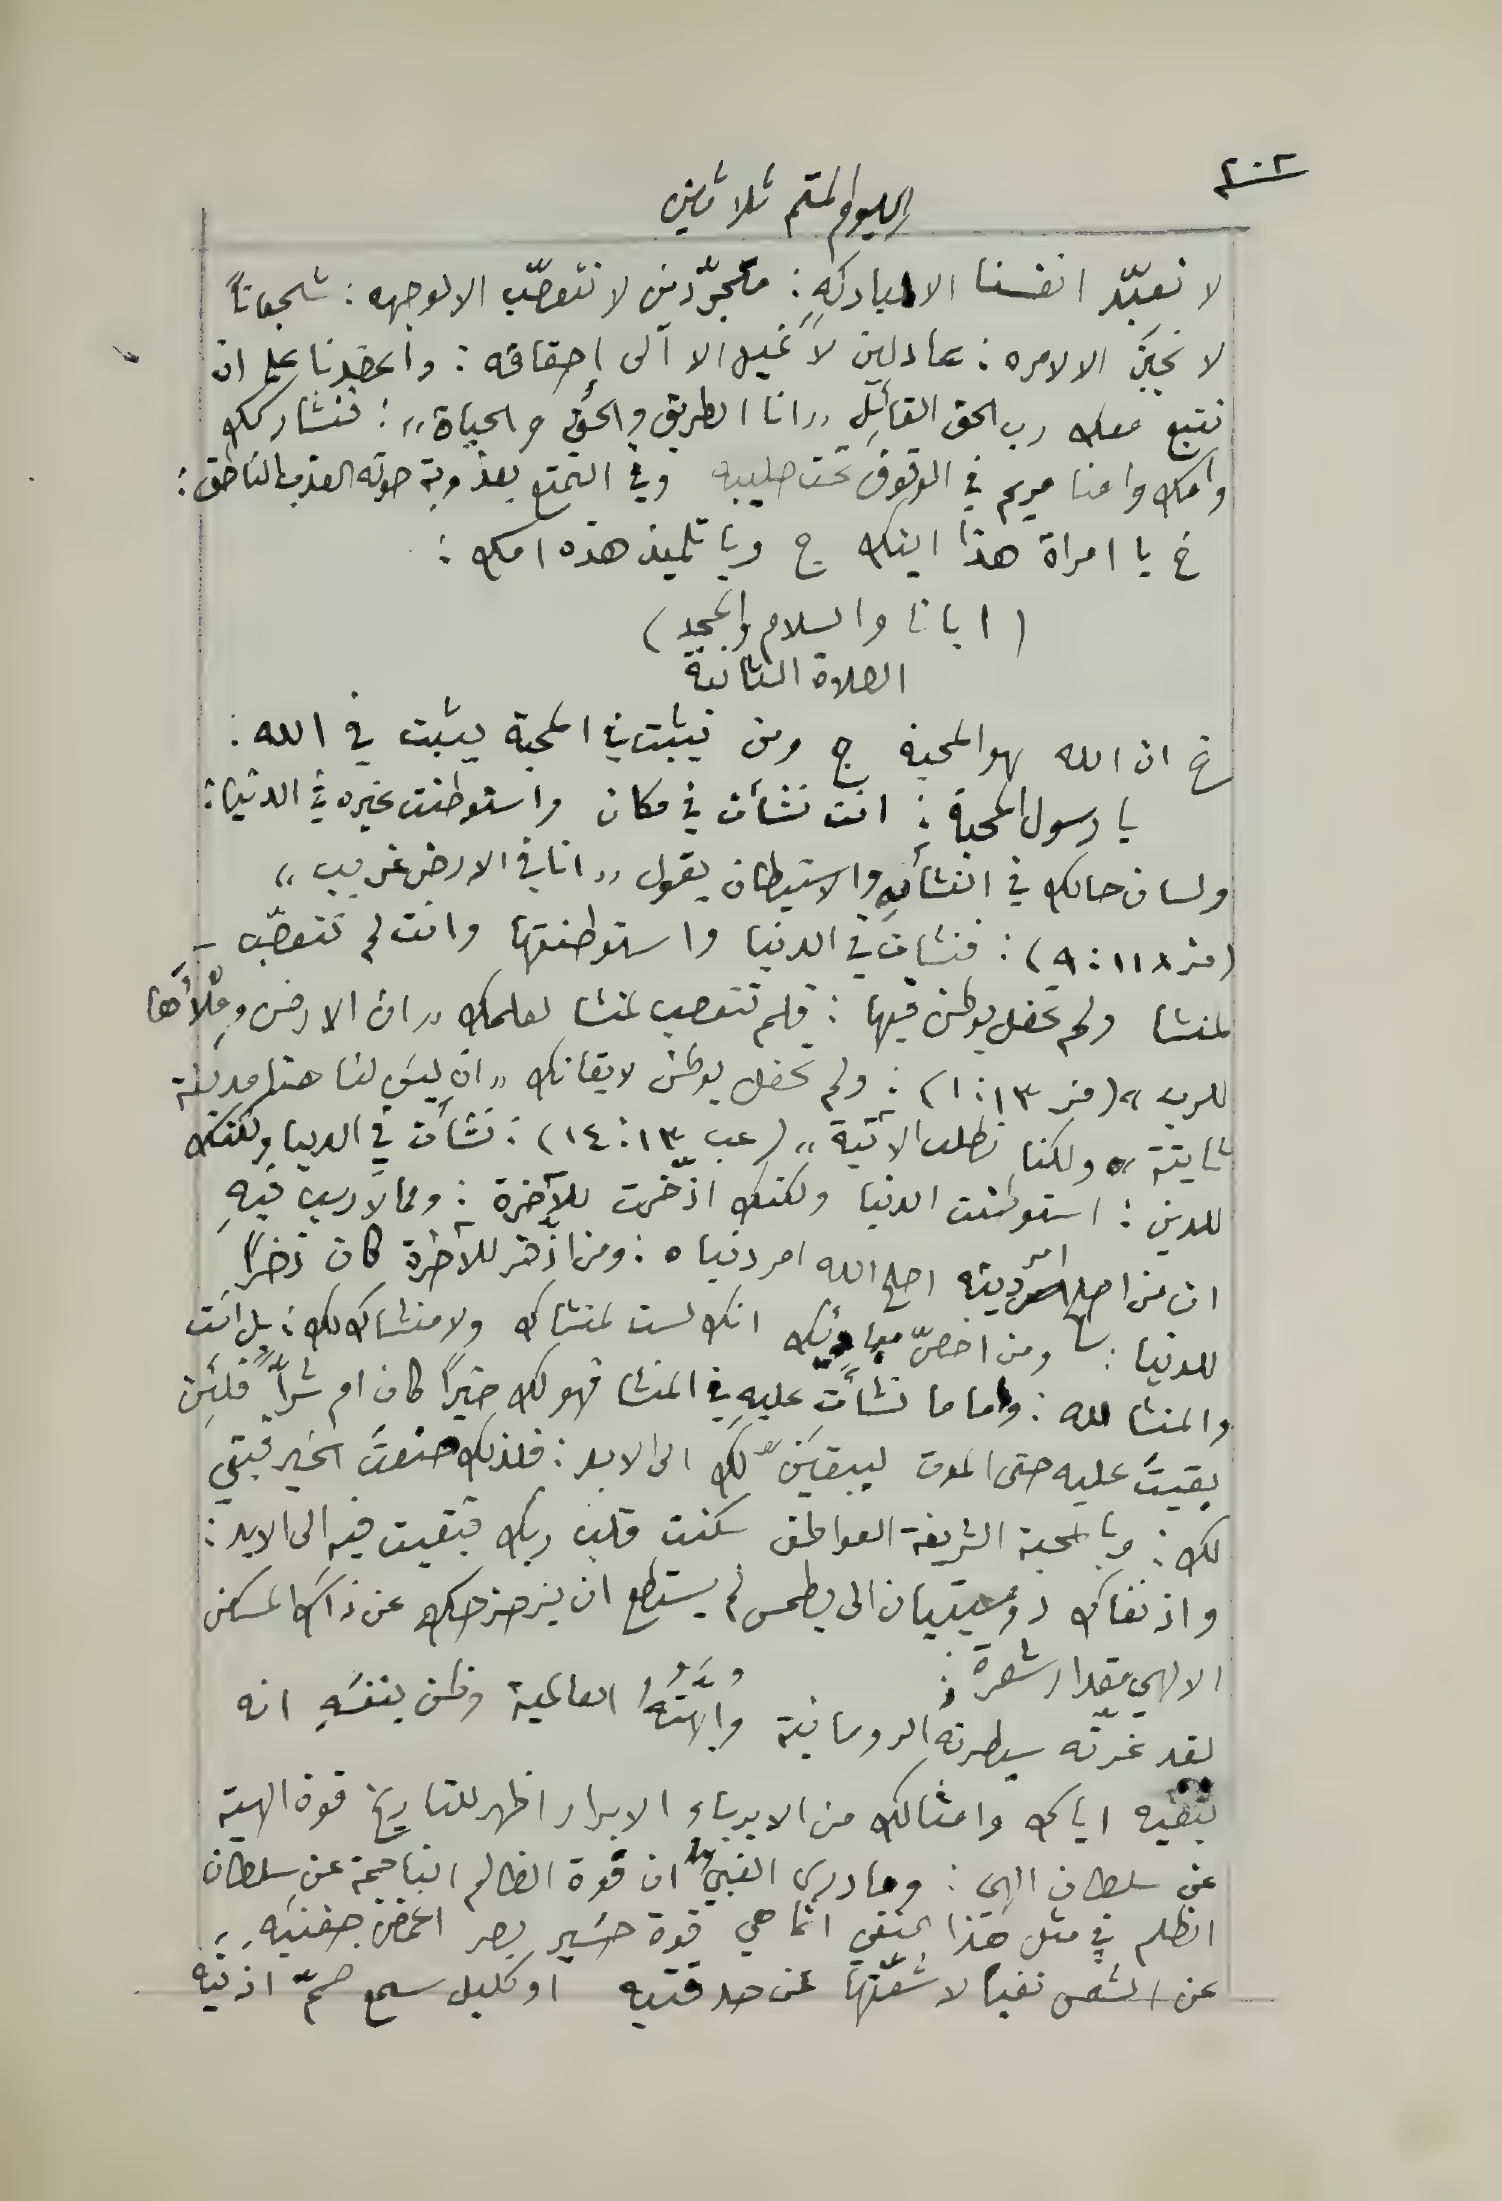 ٢٠٢
اليوم المتم ثلاثين
لا نعبّد انفسنا الا لباركه: متجرّدين لا نتعصّب الا لوجهه: شجعاناً
لا نجبن الا لامره: عادلين لا نميل الا الى احقاقه: واعضدنا على ان
نتبع معك رب الحق القائل „انا الطريق والحق والحياة„: فنشاركك
وامك وامنا مريم في الوقوف تحت صليبه وفي التمتع بعذوبة صوته العذب الناطق:
خ يا امراة هذا ابنك ج ويا تلميذ هذه امك:
(ابانا والسلام والمجد)
الصلاة الثانية
خ ان الله هو المحبة ج ومن يثبت في المحبة يثبت في الله:
يا رسول المحبة: انت نشأت في مكان واستوطنت غيره في الدنيا:
ولسان حالك في النشأة والاستيطان يقول „انا في الارض غريب„
(مز ١١٨: ٩): فنشات في الدنيا واستوطنتها وانت لم تتعصّب –
لمنشا ولم تحفل بوطن فيها: فلم تتعصب لمنشا لعلمك „ان الارض وملأها
للرب„ (مز ١٣: ١): ولم تحفل بوطن لايقانك „ان ليس لنا هنا مدينة
ثابتة„ ولكنا نطلب الآتية„ (عب ١٣: ١٤): نشأت في الدنيا ولكنك
للدين: استوطنت الدنيا ولكنك ادّخرت للآخرة: ومما لا ريب فيه
ان من اصلح امر دينه اصلح الله امر دنياه: ومن ادّخر للآخرة كان ذخراً
للدنيا: ومن اخصّ مبادئك انك لست لمنشاك ولا منشاك لك: بل انت
والمنشا لله: واما ما نشأت عليه في المنشا فهو لك خيراً كان ام شراً فلئن
بقيتَ عليه حتى الموت ليبقينّ لك الى الابد: فلذلك صنعتَ الخير فبقي
لك: وبالمحبة الشريفة العواطف سكنت قلب ربك فبقيت فيه الى الابد:
واذ نفاك دوميتيان الى بطمس لم يستطع ان يزحزحك عن ذاك المسكن
الالهي مقدار شعرة:
لقد غرّته سيطرته الرومانية وابّهته العالمية وظن بنفسه انه
بنفيه اياك وامثالك من الابرياء الابرار اظهر للتاريخ قوة الهية
عن سلطان الهي: وما درى الغبي ان قوة الظالم الناجمة عن سلطان
الظلم في مثل هذا المنفى انما هي قوة حسير بصر اغمض جفنيه
عن الشمس نفياً لاشعّتها عن حدقتيه او كليل سمع صمّ اذنيه